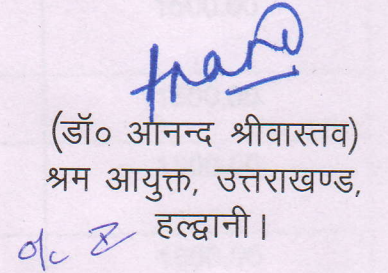 (डॉ० आनन्द श्रीवास्तव)
श्रम आयुक्त, उत्तराखण्ड,
हल्द्वानी।
o/c